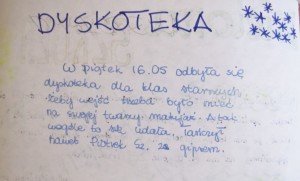 DYSKOTEKA
W piątek 16.05 odbyła się
dyskoteka dla klas starszych
żeby wejść trzeba było mieć
na swojej twarzy makijaż. A tak
wogóle to się udała, tańczył
nawet Piotrek Sz. z gipsem.